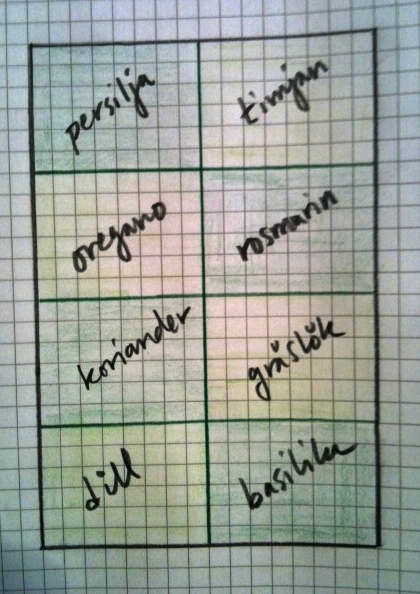 persilja
timjan
oregano
rosmarin
koriander
gräslök
dill
basilika